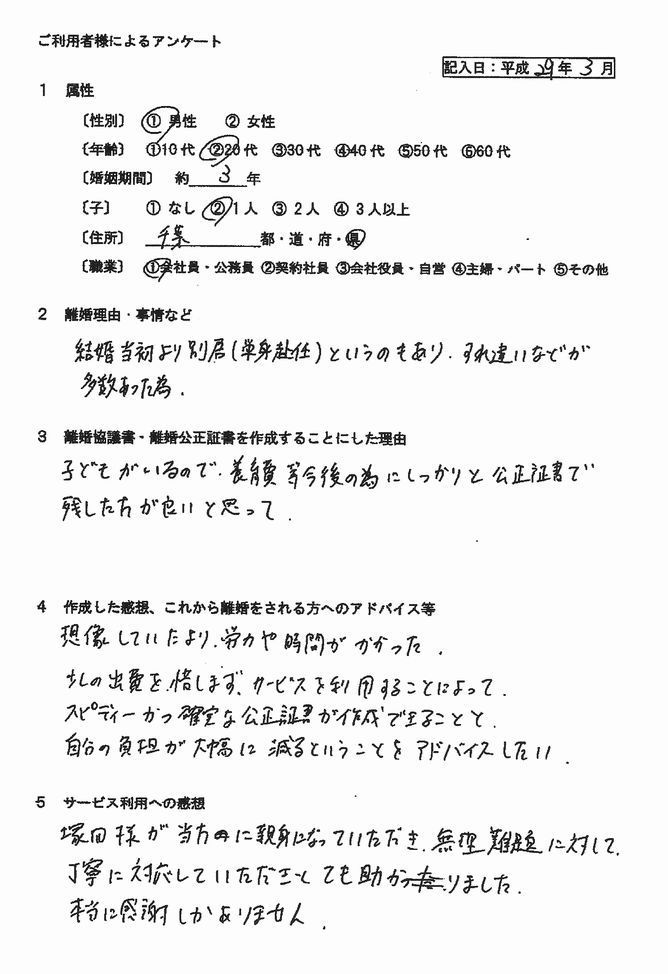 ご利用者様によるアンケート
記入日：平成29年3月
1 属性
〔性別〕 ①男性 ②女性
〔年齢〕 ①10代 ②20代 ③30代 ④40代 ⑤50代 ⑥60代
〔婚姻期間〕 約3年
〔子〕 ①なし ②1人 ③2人 ④3人以上
〔住所〕 千葉 都・道・府・県
〔職業〕 ①会社員・公務員 ②契約社員 ③会社役員・自営 ④主婦・パート ⑤その他
2 離婚理由・事情など
結婚当初より別居(単身赴任)というのもあり、すれ違いなどが
多数あった為。
3 離婚協議書・離婚公正証書を作成することにした理由
子どもがいるので、養育費等今後の為にしっかりと公正証書で
残した方が良いと思って。
4 作成した感想、これから離婚をされる方へのアドバイス等
想像していたより、労力や時間がかかった。
少しの出費を惜しまず、サービスを利用することによって、
スピディーかつ確実な公正証書が作成できることと、
自分の負担が大幅に減るということをアドバイスしたい。
5 サービス利用への感想
塚田様が当方に親身になっていただき、無理難題に対して、
丁寧に対応していただきとても助かりました。
本当に感謝しかありません。